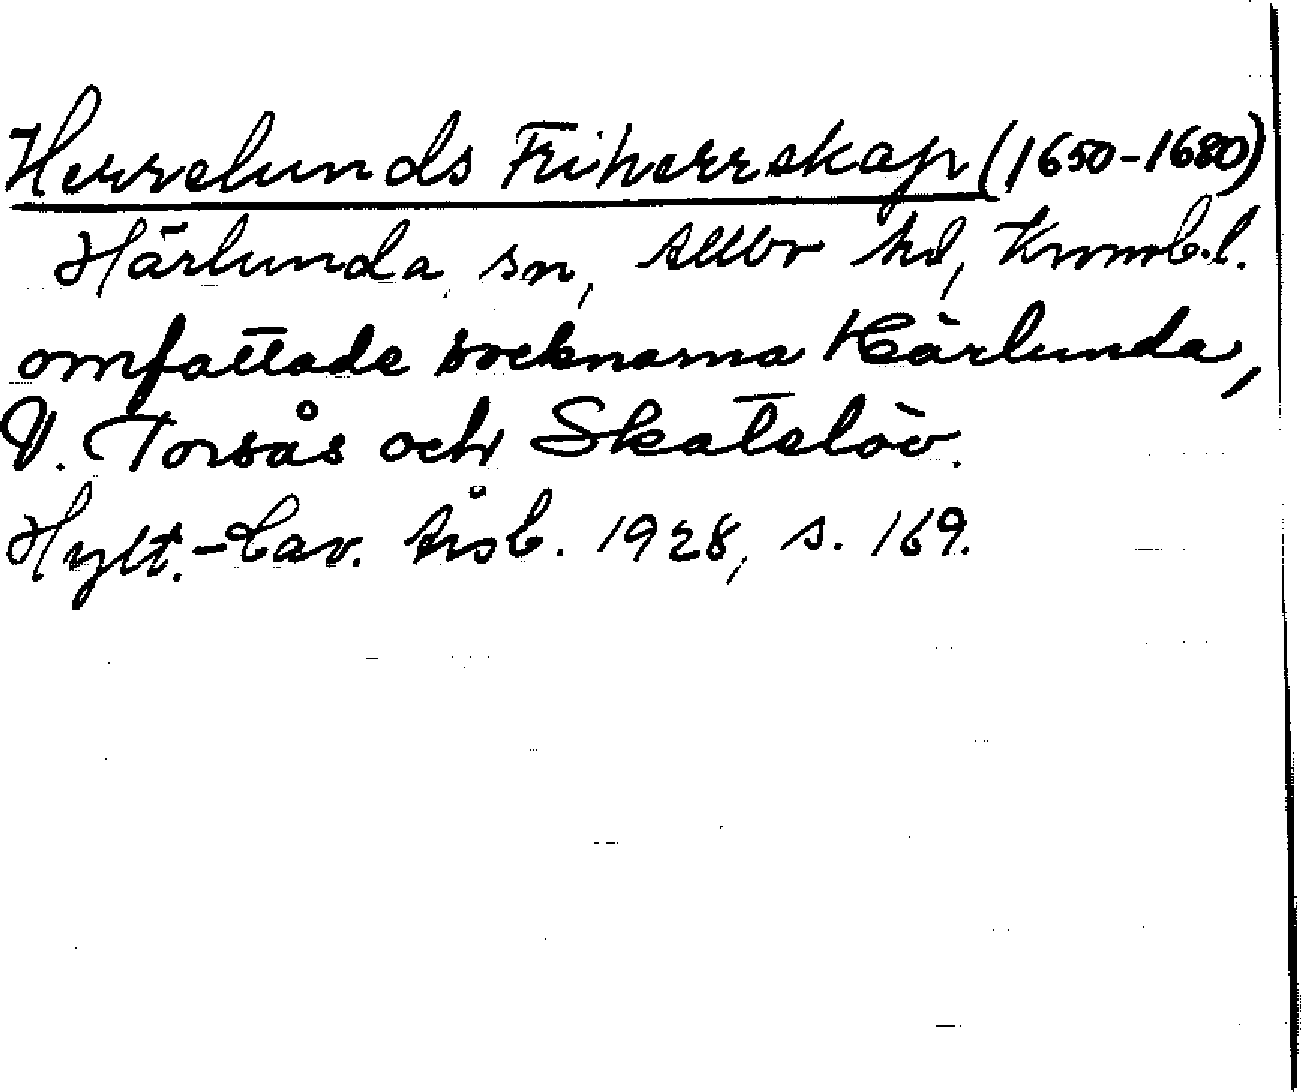 Herrelunds Friherrskap (1650-1680)
Härlunda sn, Allbo hd, Kronob.l.
omfattade socknarna Härlunda,
V. Torsås och Skatelöv.
Hylt.-Cav. Årsb. 1928, s. 169.